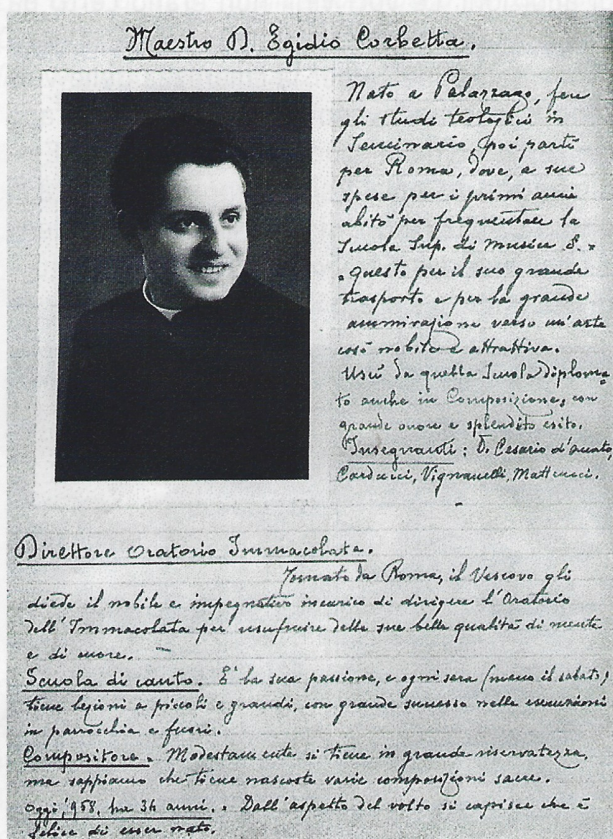 Maestro D. Egidio Corbetta.
Nato a Palazzago, fece
gli studi teologici in
Seminario, poi partì
per Roma, dove, a sue
spese per i primi anni
abitò per frequentare la
Scuola Sup. di Musica S. -
- questo per il suo grande
trasporto e per la grande
ammirazione verso un'arte
così nobile e attrattiva.
Uscì da quella Scuola diploma-
to anche in Composizione, con
grande onore e splendito esito.
Insegnanti: D. Cesario d'Amato,
Carducci, Vignanelli, Matteucci.
Direttore Oratorio Immacolata.
Tornato da Roma, il Vescovo gli
diede il nobile e impegnativo incarico di dirigere l'Oratorio
dell'Immacolata per usufruire delle sue belle qualità di mente
e di cuore.
Scuola di canto. È la sua passione, e ogni sera (meno il sabato)
tiene lezioni a piccoli e grandi, con grande successo nelle esecuzioni
in parrocchia e fuori.
Compositore. Modestamente si tiene in grande riservatezza,
ma sappiamo che tiene nascoste varie composizioni sacre.
Oggi, 1958, ha 34 anni. - Dall'aspetto del volto si capisce che è
felice di esser nato.